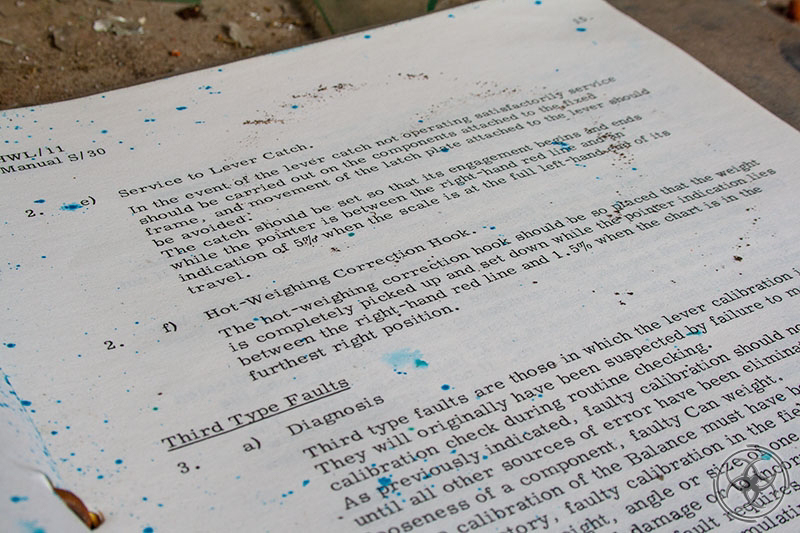 15.
HWL/11
Manual S/30
2. e) Service to Lever Catch.
In the event of the lever catch not operating satisfactorily service
should be carried out on the components attached to the fixed
frame, and movement of the latch plate attached to the lever should
be avoided.
The catch should be set so that its engagement begins and ends
while the pointer is between the right-hand red line and an
indication of 5% when the scale is at the full left-hand end of its
travel.
2. f) Hot-Weighing Correction Hook.
The hot-weighing correction hook should be so placed that the weight
is completely picked up and set down while the pointer indication lies
between the right-hand red line and 1.5% when the chart is in the
furthest right position.
Third Type Faults
3. a) Diagnosis
Third type faults are those in which the lever calibration
They will originally have been suspected by failure to
calibration check during routine checking.
As previously indicated, faulty calibration should
until all other sources of error have been
looseness of a component, faulty Can weight.
calibration of the Balance must have
faulty calibration in the
angle or size of one
damage or
fault requires